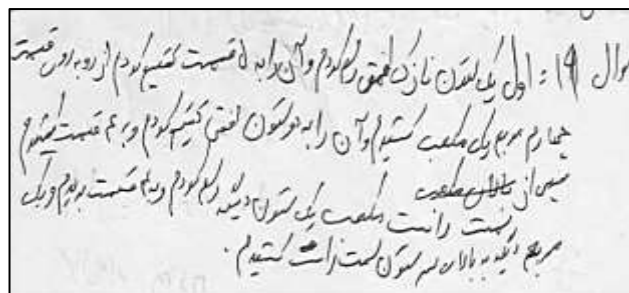 سوال ۱۹: اول یک ستون نازک افقی رسم کردم و آن را به ۵ قسمت تقسیم کردم از روبه روی قسمت
چهارم مربع یک مکعب کشیدم و آن را به دو ستون افقی تقسیم کردم و به ۴ قسمت کشیدم
سپس از
سمت راست مکعب یک ستون دیگر رسم کردم و به قسمت بریدم و یک
مربع دیگر به بالای سر ستون سمت راست کشیدم.